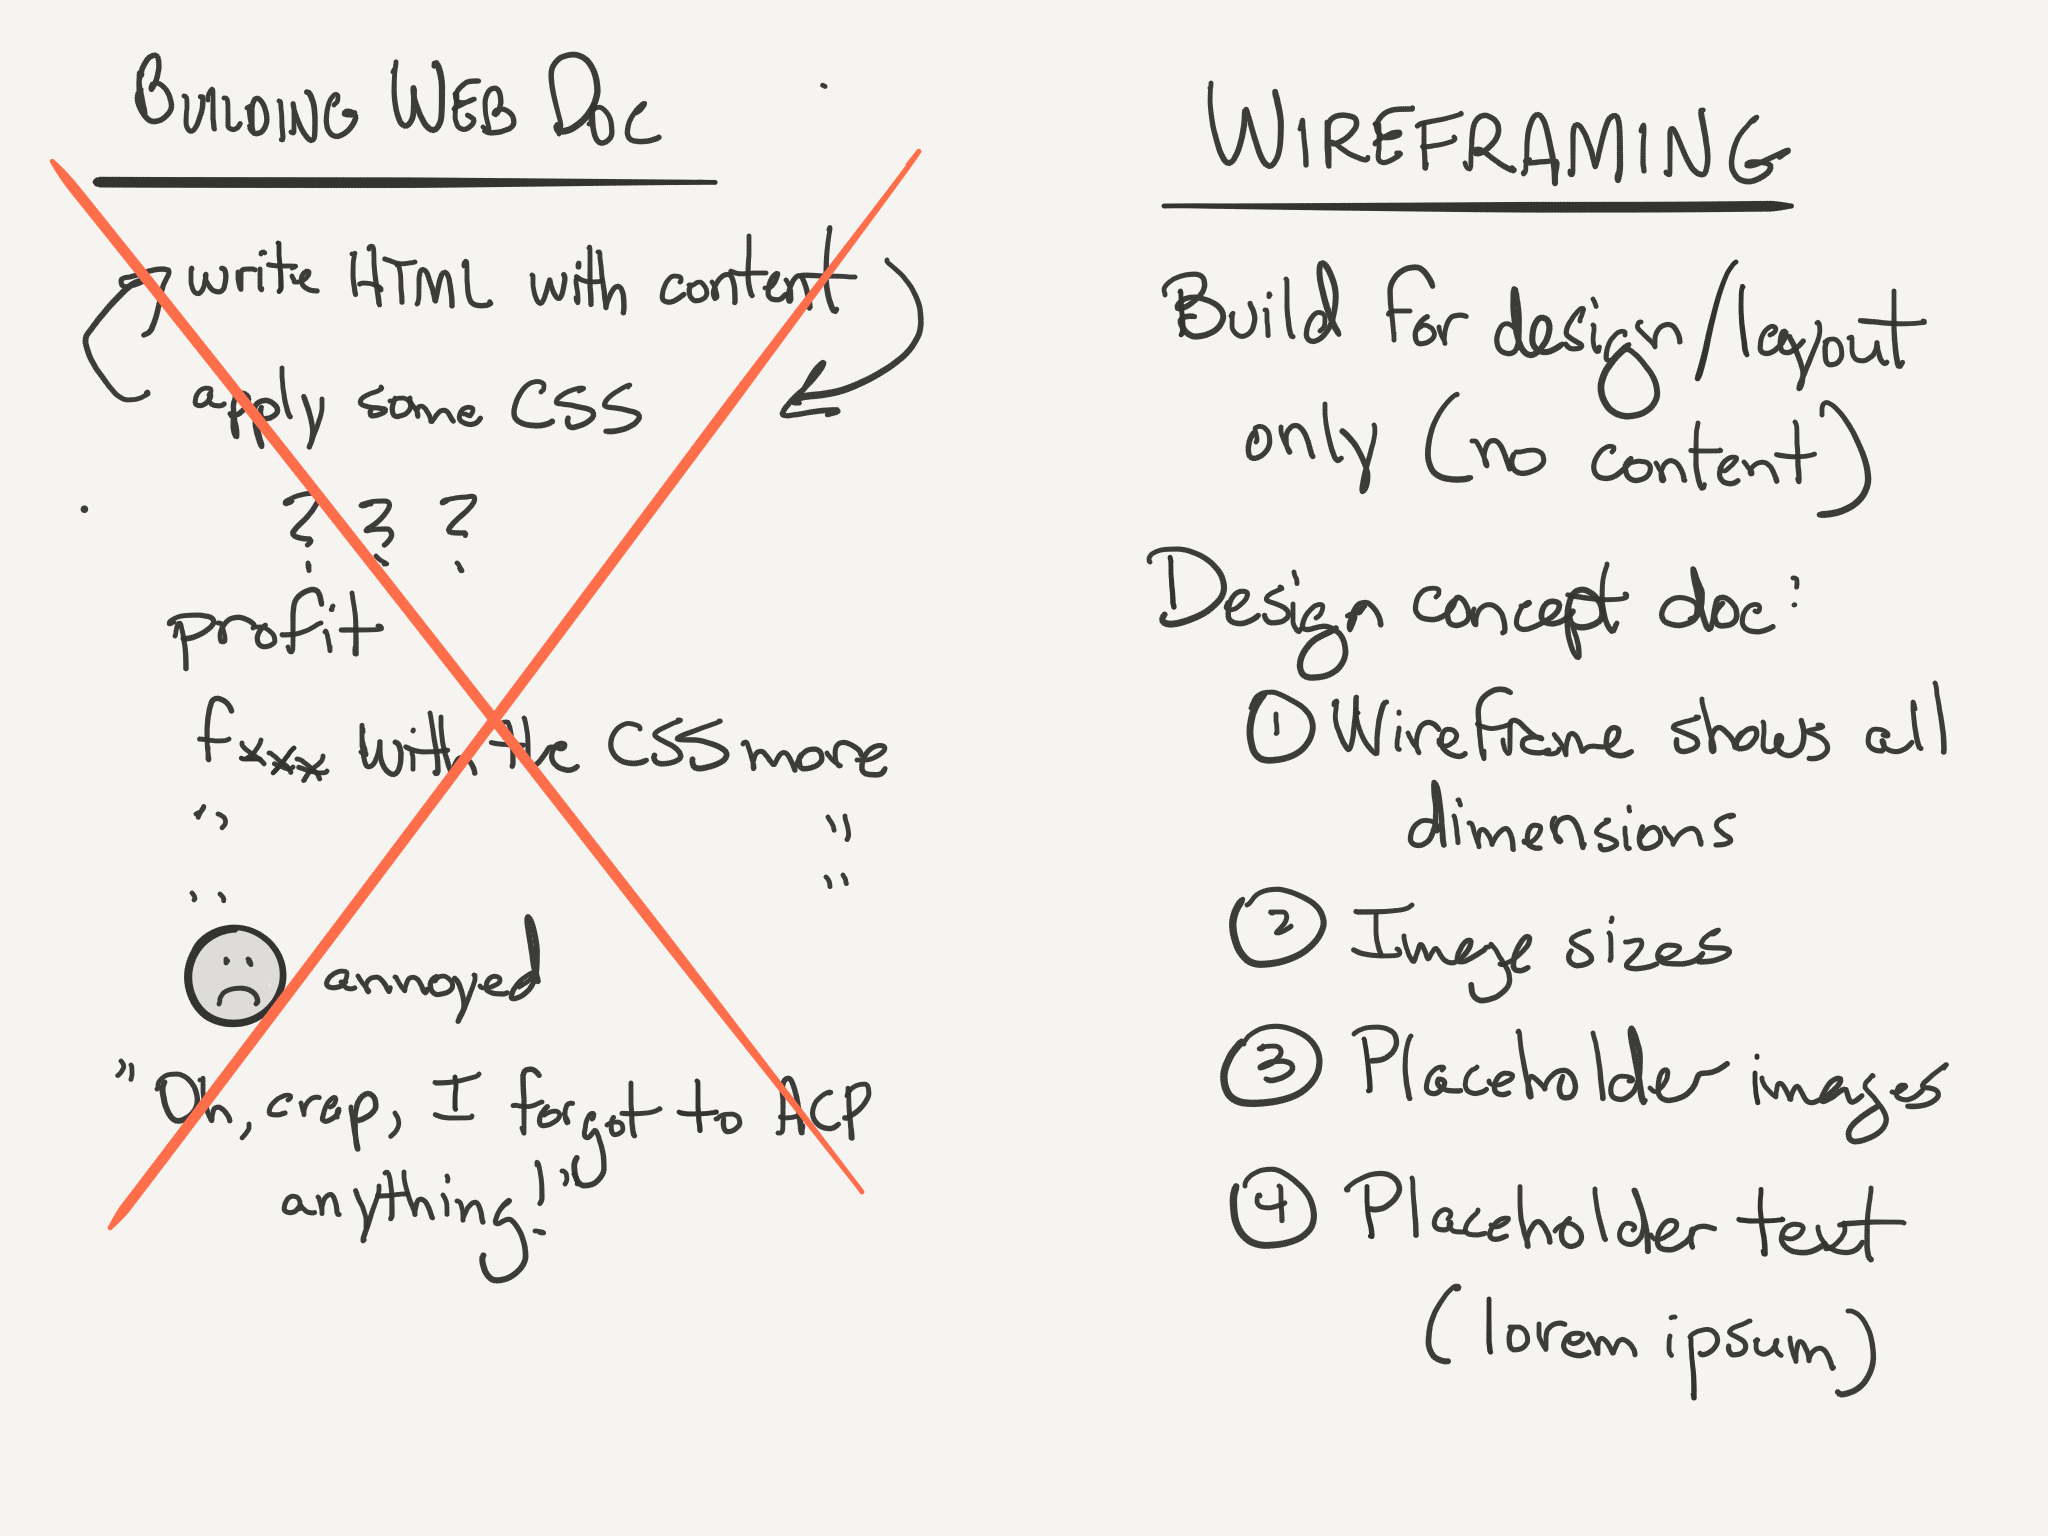 BUILDING WEB DOC
write HTML with content
apply some CSS
? ? ?
profit
fxxx with the CSS more
" "
" "
annoyed
"Oh, crap, I forgot to ACP
anything!"
WIREFRAMING
Build for design/layout
only (no content)
Design concept doc:
1 Wireframe shows all
dimensions
2 Image sizes
3 Placeholder images
4 Placeholder text
(lorem ipsum)